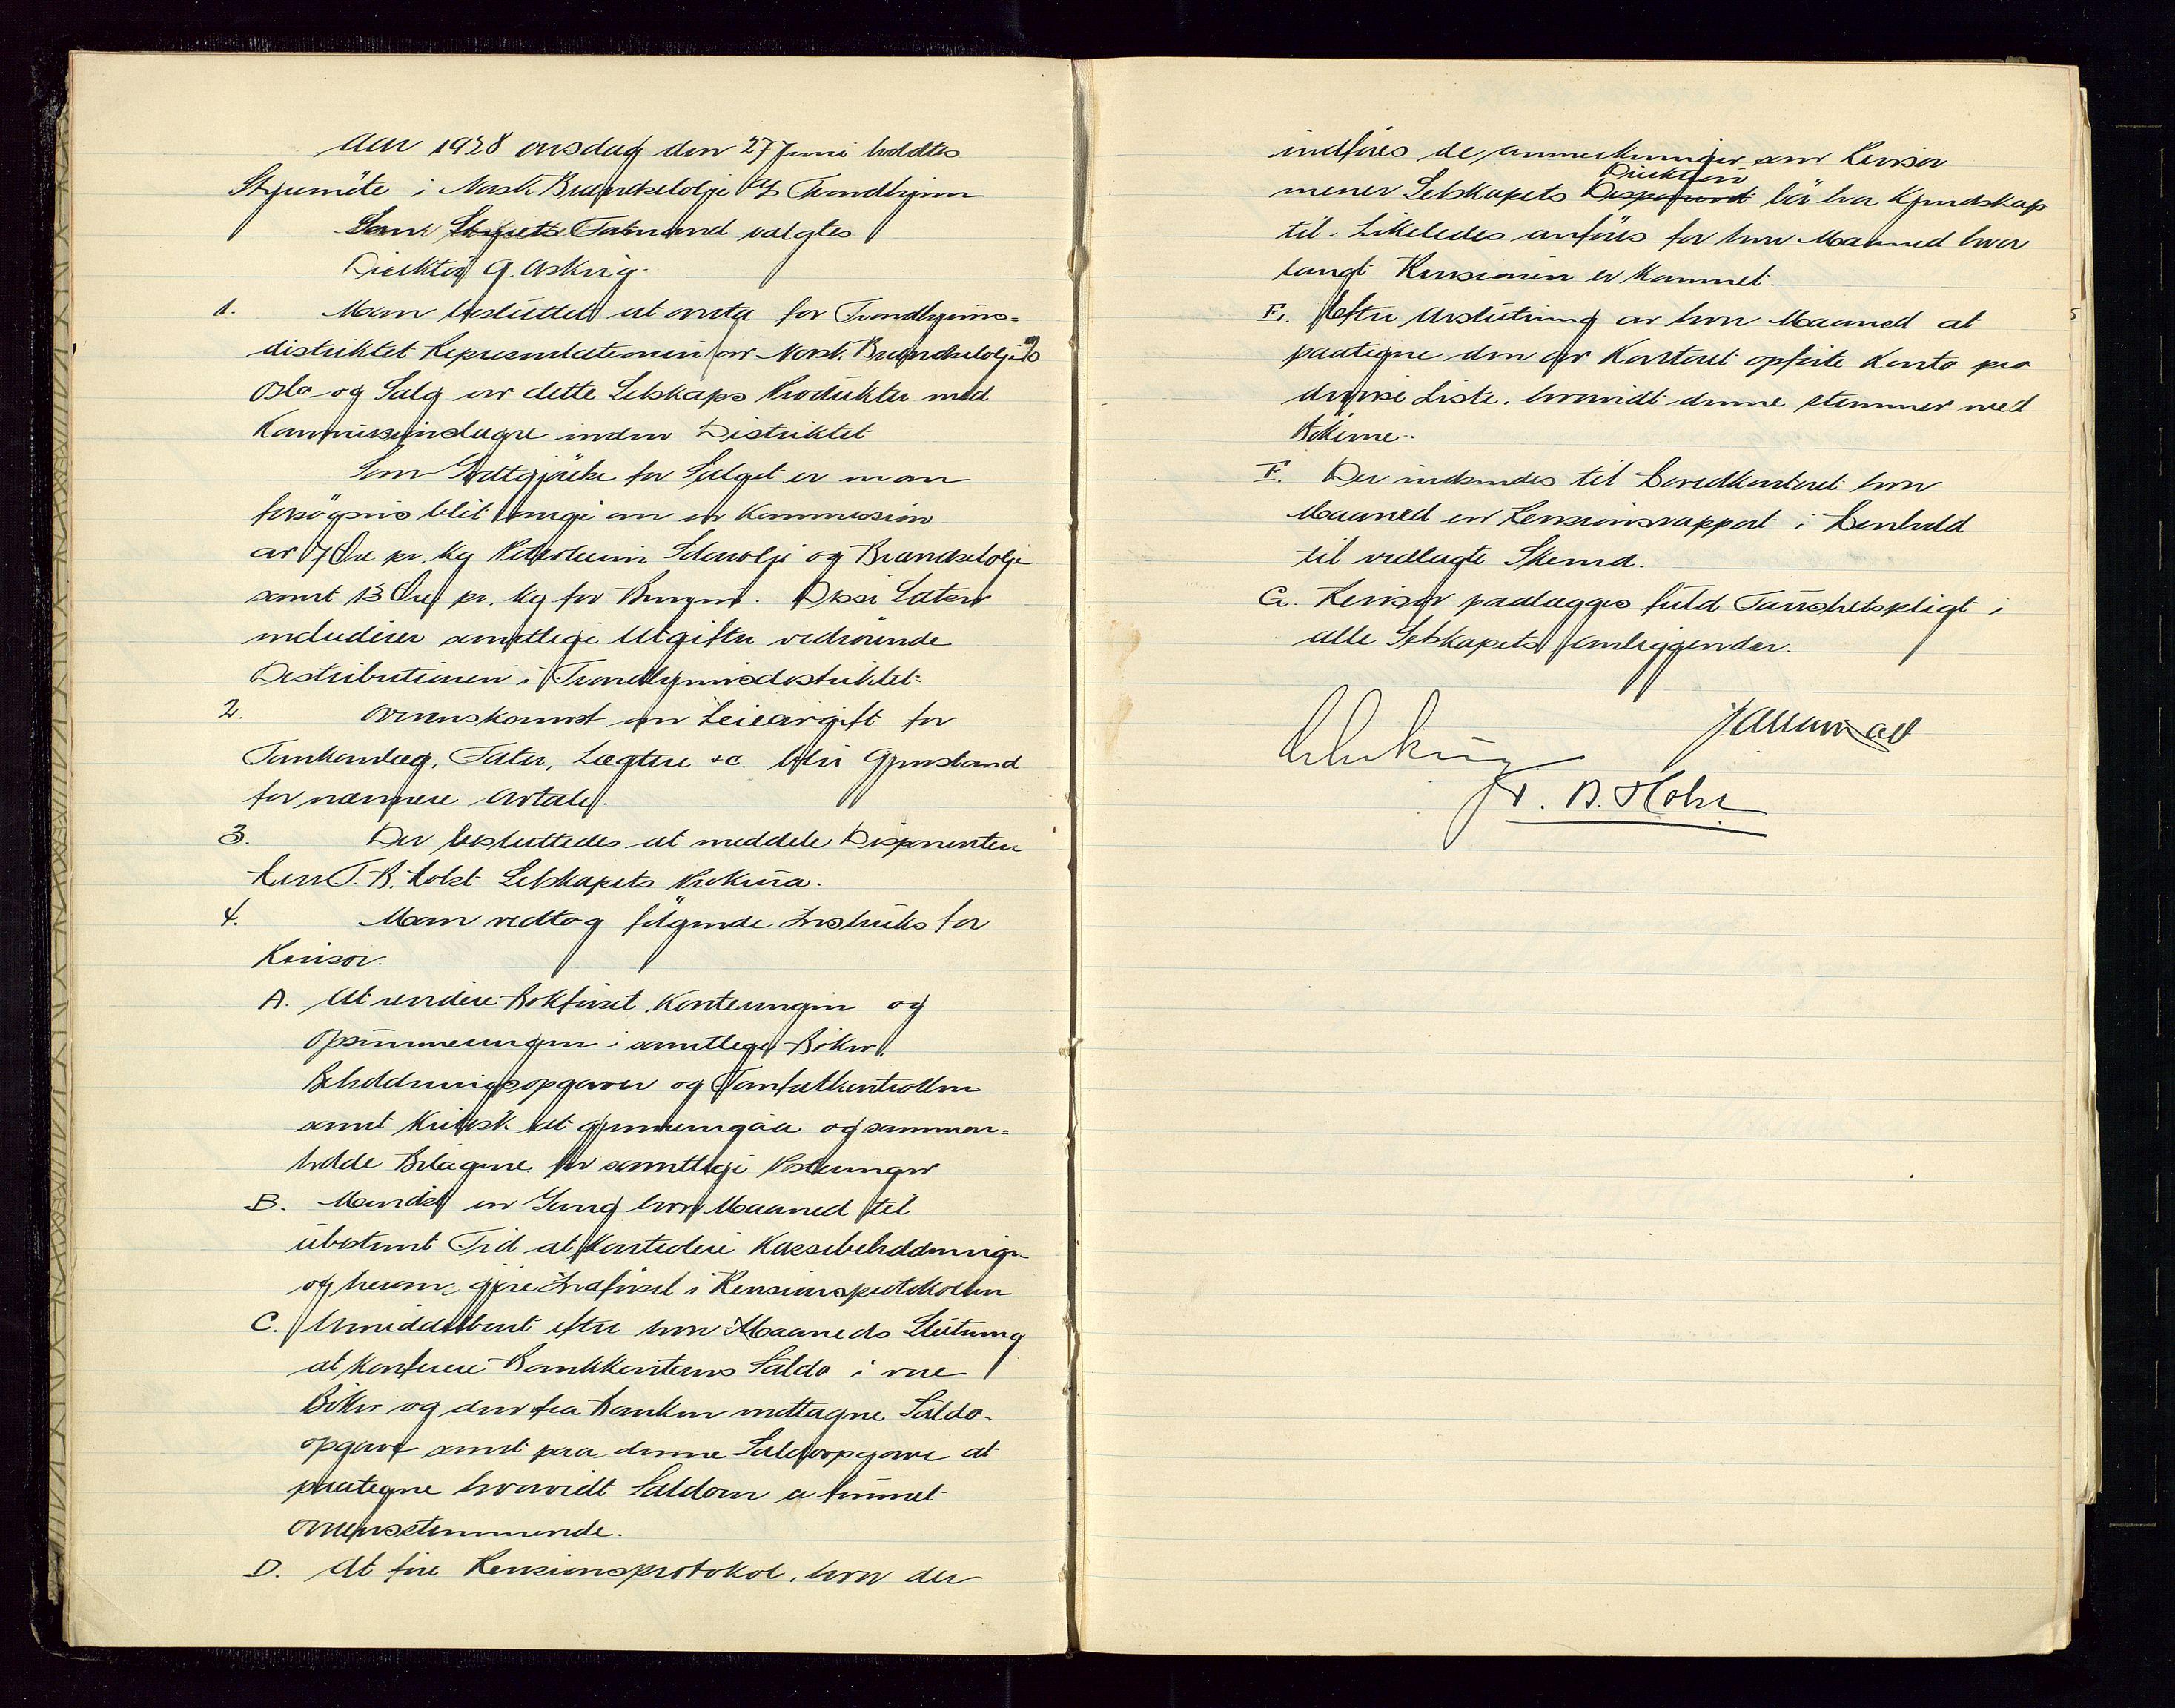 Aar 1928 onsdag den 27 Juni holdtes
Styremöte i Norsk Brændselolje A/S Trondhjem
Som Styrets Formand valgtes
Direktör G. Askvig.
1. Man besluttet at onta for Trondhjems=
distriktet Representationen av Norsk Brændselolje A/S
Oslo og Salg av dette Selskaps Produkter med
Kommissionslagre inden Distriktet
Som Godtgjörelse for Salget er man
forsögsvis blit enige om en Kommission
av 7 Öre pr. kg Petroleum Solarolje og Brændselolje
samt 13 Öre pr. kg for Benzin. Disse Satser
inkluderer samtlige Utgifter vedrörende
Distributionen i Trondhjemsdistriktet.
2. Overenskomst om Leieavgift for
Tankanlæg, Fater, Lægtere &c. blir Gjenstand
for nærmere Avtale.
3. Der besluttedes at meddele Disponenten
Herr T. B. Holst Selskapets Prokura.
4. Man vedtog fölgende Instruks for
Revisor.
A. At revidere Bokförsel, Konteringen og
Opsummeringen i samtlige Böker,
Beholdningsopgaver og Tomfatkontrollen
samt kritisk at gjennemgaa og sammen=
holde Bilagene for samtlige Posteringer
B. Mindst en Gang hver Maaned til
ubestemt Tid at kontrolere Kassebeholdningen
og herom gjöre Indförsel i Revisionsprotokollen
C. Umiddelbart efter hver Maaneds Slutning
at konferere Bankkontoens Saldo i vore
Böker og den fra Banken mottagne Saldo-
opgave samt paa denne Saldoopgave at
paategne hvorvidt Saldoen er funnet
overensstemmende.
D. At före Revisionsprotokol, hvor der
indföres de anmerkninger som Revisor
Direktion
mener Selskapets Disponent bör hva Kjendskap
til. Likeledes anföres for hver Maaned hvor
langt Revisionen er kommet.
E. Efter Avslutning av hver Maaned at
paategne den av Kontoret opförte Konto pro
diverse Liste, hvorvidt denne stemmer med
Bökerne.
F. Der indsendes til Hovedkontoret hver
Maaned en Revisionsrapport i Henhold
til vedlagte Skema.
G. Revisor paalægges fuld Taushetspligt i
alle Selskapets Anliggender.
T. B. Holst